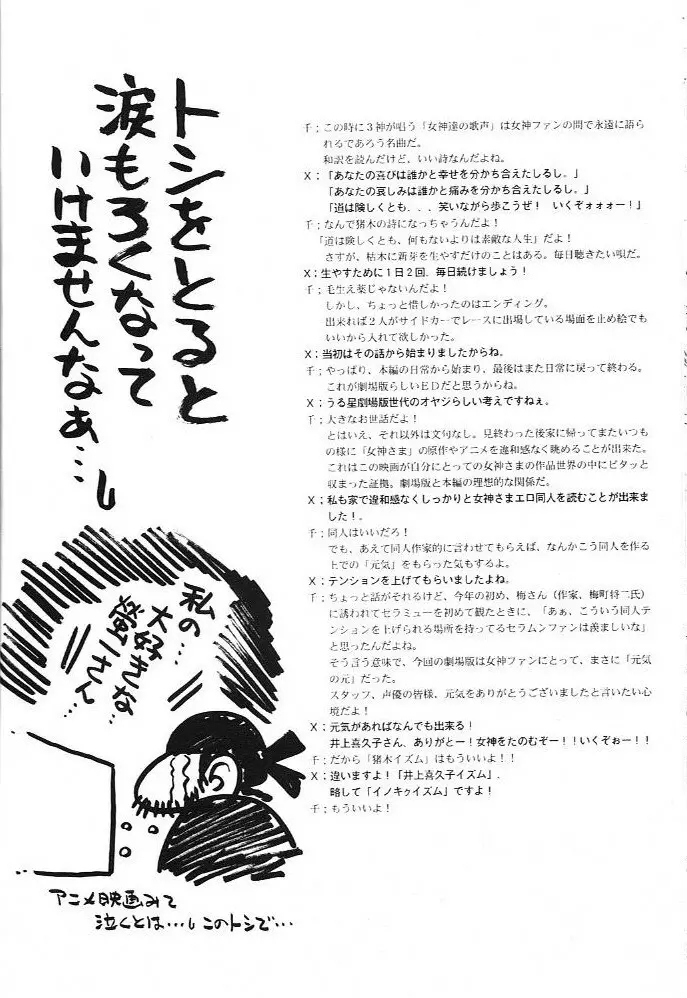 トシをとると
涙もろくなって
いけませんなぁ…
千；この時に３神が唱う「女神達の歌声」は女神ファンの間で永遠に語ら
れるであろう名曲だ。
和訳を読んだけど、いい詩なんだよね。
Ｘ；「あなたの喜びは誰かと幸せを分かち合えたしるし。」
「あなたの哀しみは誰かと痛みを分かち合えたしるし。」
「道は険しくとも．．．笑いながら歩こうぜ！　いくぞォォォー！」
千；なんで猪木の詩になっちゃうんだよ！
「道は険しくとも、何もないよりは素敵な人生」だよ！
さすが、枯木に新芽を生やすだけのことはある。毎日聴きたい唄だ。
Ｘ；生やすために１日２回．毎日続けましょう！
千；毛生え薬じゃないんだよ！
しかし、ちょっと惜しかったのはエンディング。
出来れば２人がサイドカーでレースに出場している場面を止め絵でも
いいから入れて欲しかった。
Ｘ；当初はその話から始まりましたからね。
千；やっぱり、本編の日常から始まり、最後はまた日常に戻って終わる。
これが劇場版らしいＥＤだと思うからね。
Ｘ；うる星劇場版世代のオヤジらしい考えですねぇ。
千；大きなお世話だよ！
とはいえ、それ以外は文句なし。見終わった後家に帰ってまたいつも
の様に「女神さま」の原作やアニメを違和感なく眺めることが出来た。
これはこの映画が自分にとっての女神さまの作品世界の中にピタッと
収まった証拠。劇場版と本編の理想的な関係だ。
Ｘ；私も家で違和感なくしっかりと女神さまエロ同人を読むことが出来ま
した！。
千；同人はいいだろ！
でも、あえて同人作家的に言わせてもらえば、なんかこう同人を作る
上での「元気」をもらった気もするよ。
Ｘ；テンションを上げてもらいましたよね。
千；ちょっと話がそれるけど、今年の初め、梅さん（作家、梅町将二氏）
に誘われてセラミューを初めて観たときに、「あぁ、こういう同人テ
ンションを上げられる場所を持ってるセラムンファンは羨ましいな」
と思ったんだよね。
そう言う意味で、今回の劇場版は女神ファンにとって、まさに「元気
の元」だった。
スタッフ、声優の皆様、元気をありがとうございましたと言いたい心
境だよ！
Ｘ；元気があればなんでも出来る！
井上喜久子さん、ありがとー！女神をたのむぞー！！いくぞぉー！！
千；だから「猪木イズム」はもういい！！
Ｘ；違いますよ！「井上喜久子イズム」．
略して「イノキゥイズム」ですよ！
千；もういいよ！
私の…
大好きな
螢一さん…
アニメ映画みて
泣くとは…このトシで…